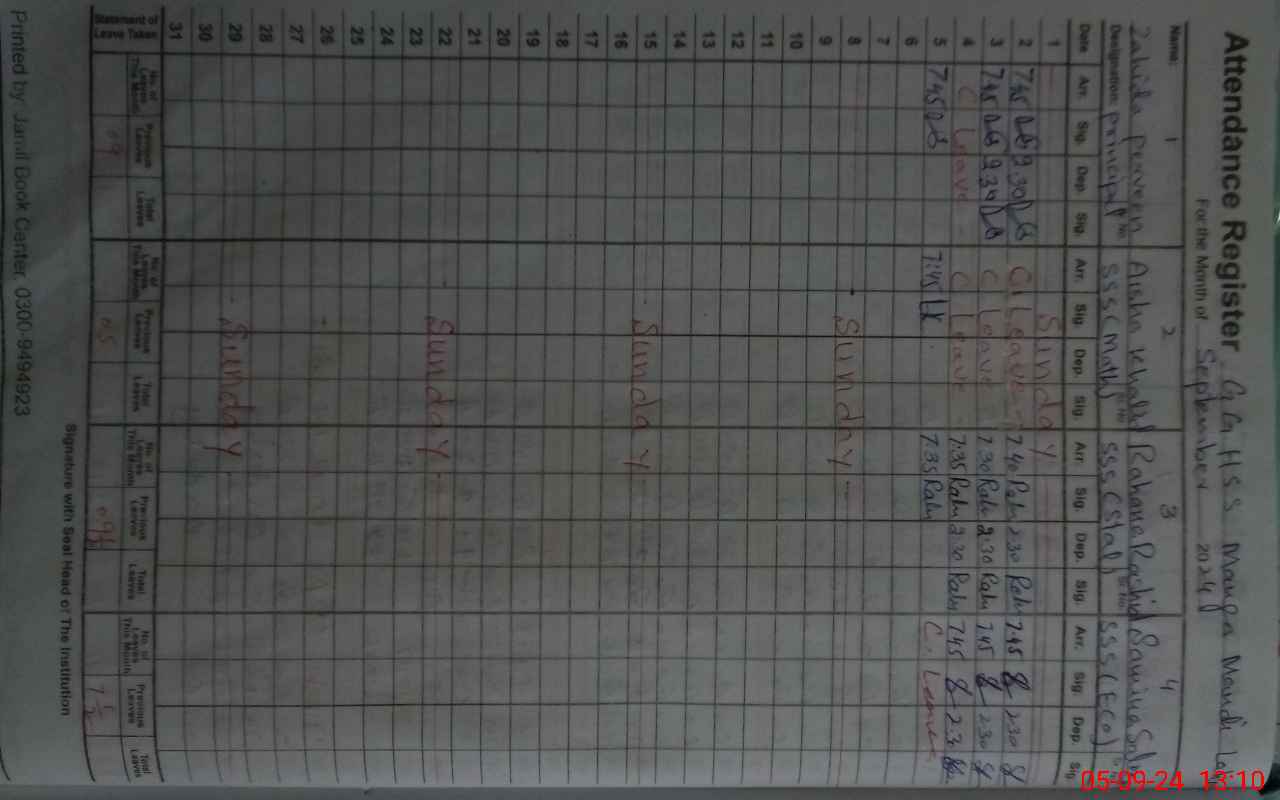 Attendance Register G G H S S Manga Mandi
For the Month of September 2024
1 2 3 4
Name: Zahida perveen Aisha Khalid Rahana Rashid Samina
Designation: principal SSS (Math) SSS (Stat) SSS (Eco)
Date Arr. Sig. Dep. Sig. Arr. Sig. Dep. Sig. Arr. Sig. Dep. Sig. Arr. Sig. Dep. Sig.
1 Sunday
2 7.45 2.30 C. Leave 7.40 Rahn 2.30 Rahn 7.45 2.30
3 7.45 2.30 C Leave 7.30 Rahn 2.30 Rahn 7.45 2.30
4 C Leave C Leave 7.35 Rahn 2.30 Rahn 7.45 2.30
5 7.45 7:45 7.35 Rahn C. Leave
6
7
8 Sunday
9
10
11
12
13
14
15 Sunday
16
17
18
19
20
21
22 Sunday
23
24
25
26
27
28
29 Sunday
30
31
Statement of Leave Taken
No. of Leaves This Month Previous Leaves Total Leaves No. of Leaves This Month Previous Leaves Total Leaves No. of Leaves This Month Previous Leaves Total Leaves No. of Leaves This Month Previous Leaves Total Leaves
09 05 09½ 7½
Signature with Seal Head of The Institution
Printed by Jamil Book Center, 0300-9494923
05-09-24 13:10